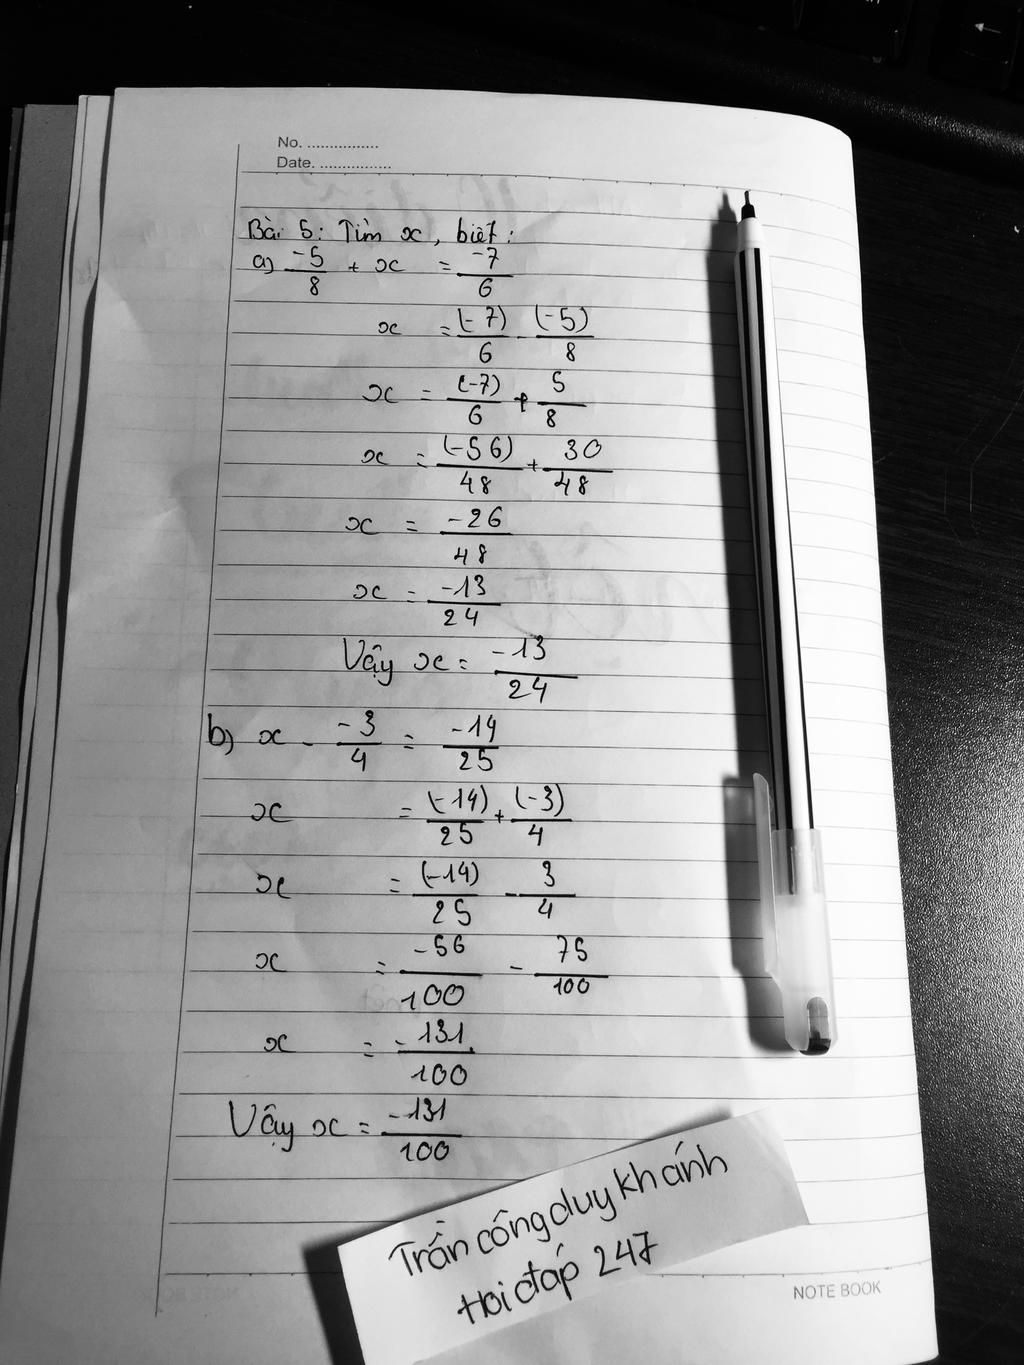 No. ................
Date. ................
Bài 5: Tìm x, biết:
a) -5/8 + x = -7/6
x = (-7)/6 - (-5)/8
x = (-7)/6 + 5/8
x = (-56)/48 + 30/48
x = -26/48
x = -13/24
Vậy x = -13/24
b) x - -3/4 = -14/25
x = (-14)/25 + (-3)/4
x = (-14)/25 - 3/4
x = -56/100 - 75/100
x = -131/100
Vậy x = -131/100
Trần công duy khánh
Hoi đáp 247
NOTE BOOK